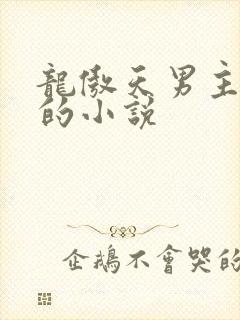 龍傲天男主
的小說
企鵝不會哭的